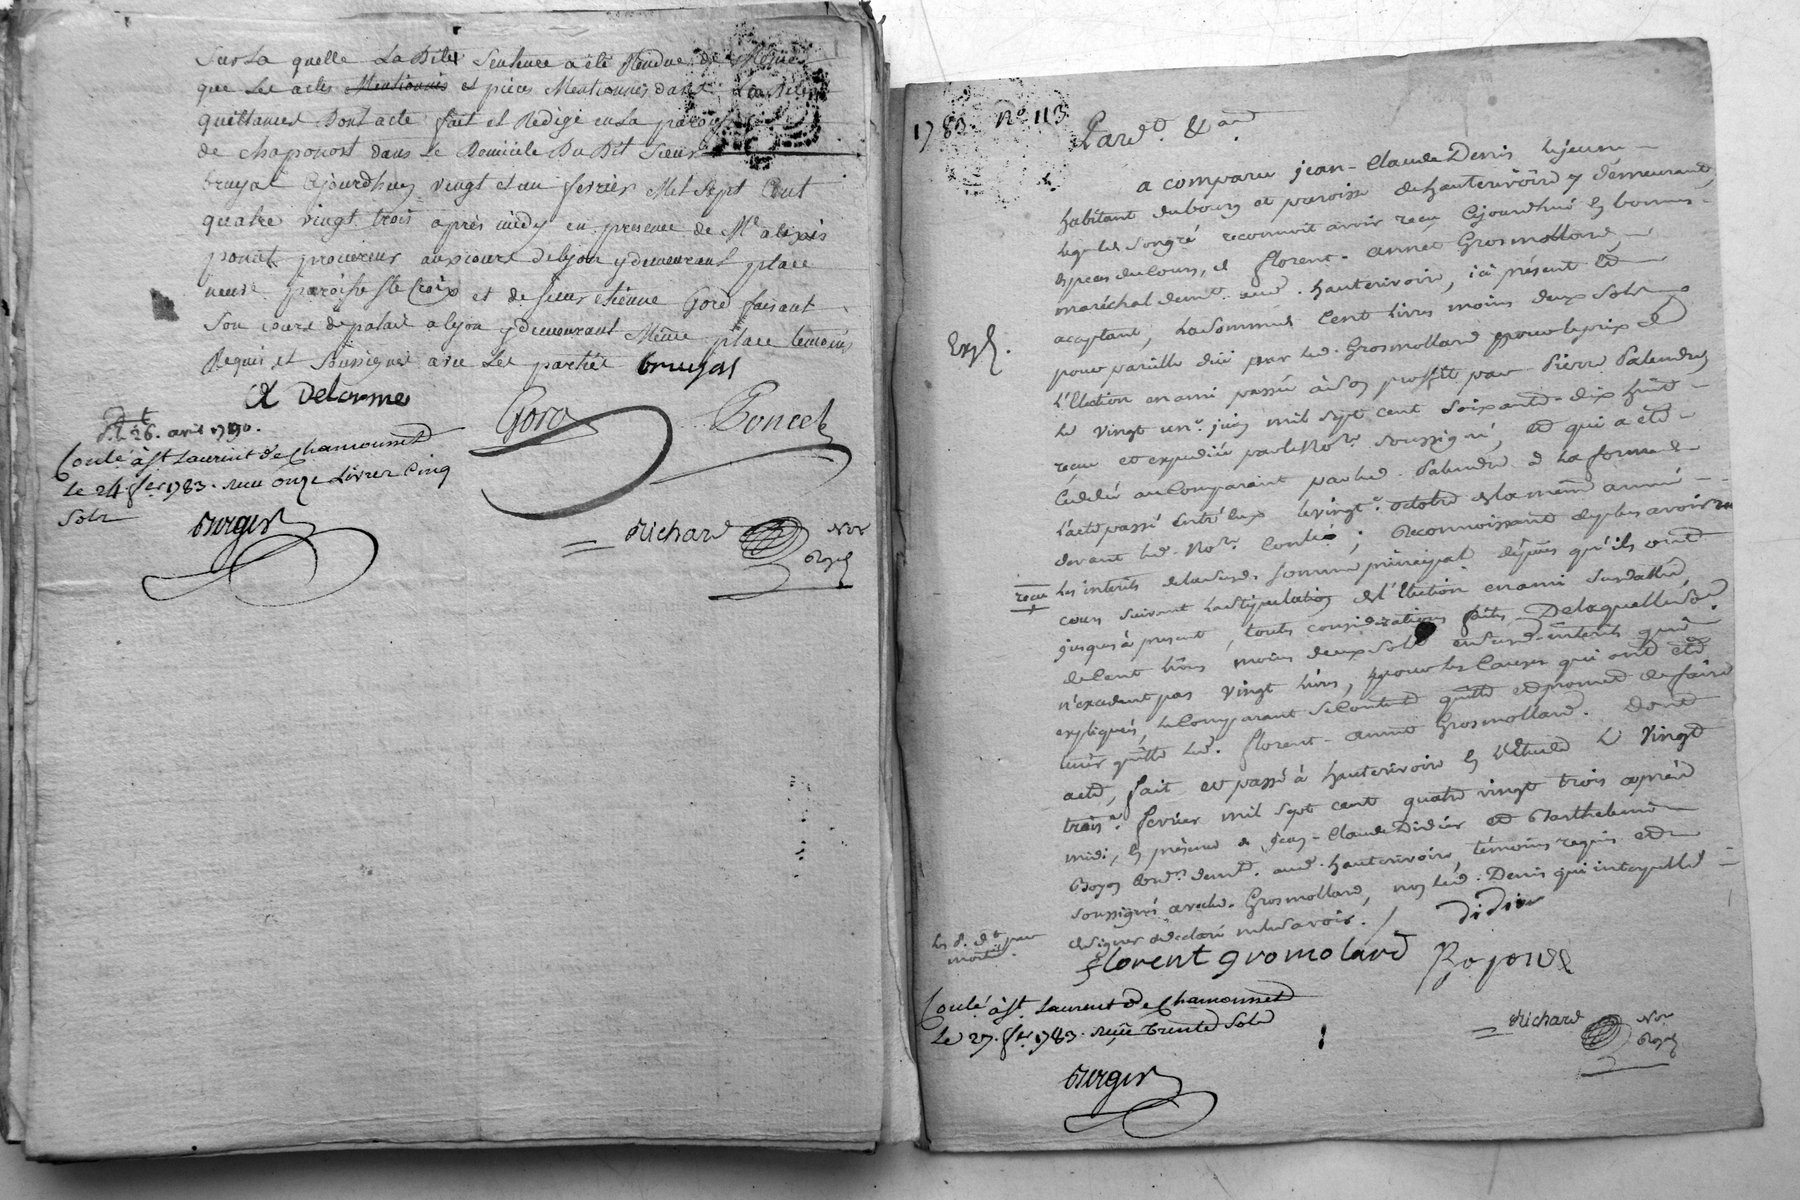 Sur La quelle La Dite Sentence a été Rendue de Même
que Les actes Mentionnés et pièces Mentionnés dans La dite
quittance Dont acte fait et Rédigé en La paroisse
de chaponost dans Le Domicile Du Dit Sieur
bruyas Cejourdhuy vingt et un fevrier Mil Sept Cent
quatre vingt trois après midy en presence de Me alexis
poncet procureur aux cours de lyon y demeurant place
neuve paroisse Ste Croix et de sieur etienne Goro faisant
Son cours de palais a lyon y demeurant Même place temoins
Requis et Soussignés avec Les parties bruyas
Delorme
Goro Poncet
26. avril 1790.
Conlé à St. Laurent de Chamousset
Le 24. fer. 1783. reçu onze Livres Cinq
Sols
burger
Richard Nore
Royal
1783. No. 113
Pardt. &ant
a comparu jean-Claude Denis lejeune
habitant du bourg et paroisse de hauterivoire y demeurant,
lequel de son gré reconnoit avoir reçu cejourdhui en bonnes
espèces du cours, de florent-anné Grosmollard,
maréchal demt. aud. hauterivoire, ici présent et
acceptant, la somme de Cent livres moins deux Sols
Expé.
pour pareille dûe par led. Grosmollard pour le prix de
l'Election en ami passée à son proffit par Pierre Palandre
le vingt un. juin mil sept cent soixante-dix huit
reçue et expediée par le Nore. soussigné, et qui a été
cedée au Comparant par led. Palandre de la somme
l'acte passé entr'eux le vingt. octobre de la même année
devant led. Nore. Conlé; Reconnoissant de plus avoir
reçu les interets de lad. somme principal depuis qu'ils ont
cours suivant la stipulation de l'Election en ami susdattée,
jusques à present, toutes considerations faites. De laquelle somme
de Cent livres moins deux Sols ensemble interets qui
n'excedent pas vingt livres, & pour les causes qui ont été
expliqués, le Comparant se Contente quitte et promet de faire
tenir quitte led. florent-anné Grosmollard. Dont
acte, fait et passé à hauterivoire en l'Etude le vingt
trois. fevrier mil sept cent quatre vingt trois après
midi, en présence de Jean-Claude Didier et Barthelemi
Boyon cordr. demt. aud. hauterivoire, témoins requis et
soussignés avec led. Grosmollard, non led. Denis qui interpellé
de signer a declaré ne le savoir.
didier
florent gromolard
Conlé à St. Laurent de Chamousset
Le 27. fer. 1783. reçu trente Sols
burger
Richard Nore
Royal